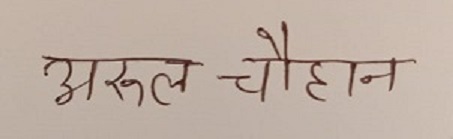 अरूल चौहान